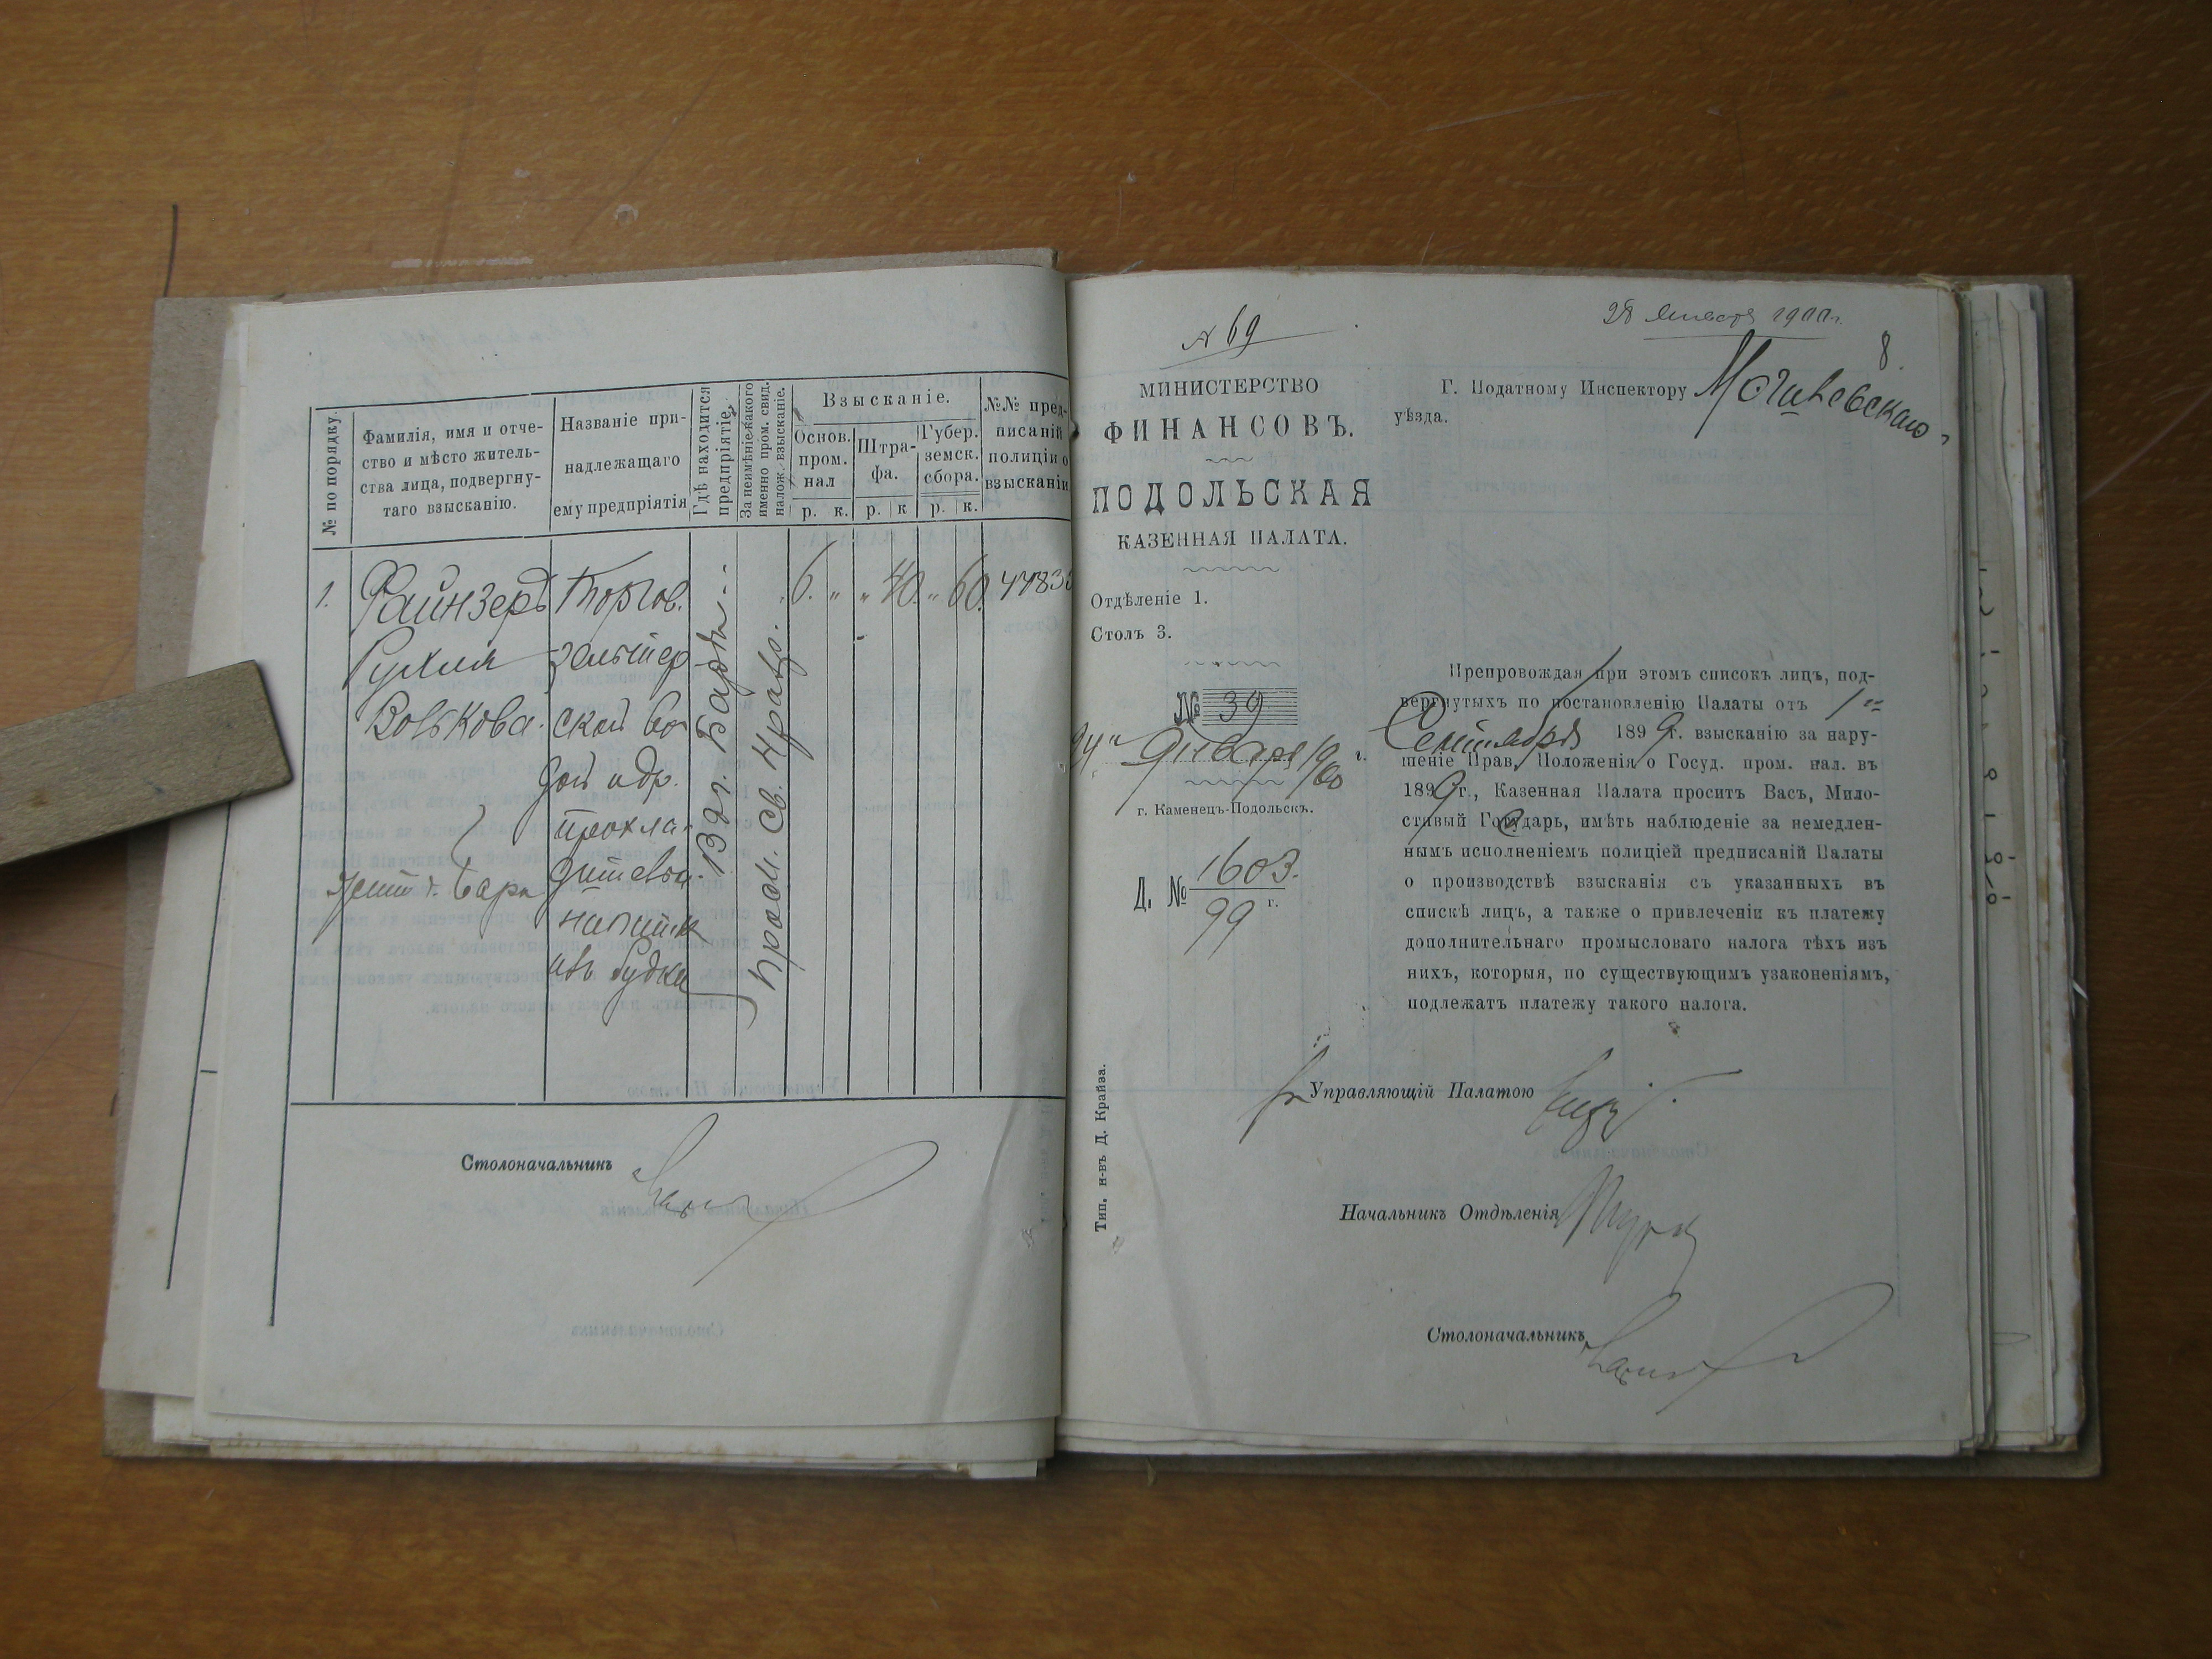 № по порядку.
Фамилія, имя и отче-
ство и мѣсто житель-
ства лица, подвергну-
таго взысканію.
Названіе при-
надлежащаго
ему предпріятія
Гдѣ находится
предпріятіе.
За неимѣніе какого
именно пром. свид.
налож. взысканіе.
Взысканіе.
Основ.
пром.
нал
Штра-
фа.
Губер.
земск.
сбора.
р. к. р. к р. к.
№№ пред-
писаній
полиціи о
взысканіи
1.
Файнзеръ
Рухля
Волькова.
Торгов.
зельтер
ской во
дой и др.
прохла
дительн.
напитк
изъ будки
В г. Барѣ
Пром. св.
6. " " 40. " 60. 4783
Столоначальникъ
№ 69
28 января 1900 г.
8.
МИНИСТЕРСТВО
ФИНАНСОВЪ.
ПОДОЛЬСКАЯ
КАЗЕННАЯ ПАЛАТА.
Отдѣленіе 1.
Столъ 3.
№ 39
24 Января 1900 г.
г. Каменецъ-Подольскъ.
Д. № 1603.
99 г.
Г. Податному Инспектору Могилевскаго
уѣзда.
Препровождая при этомъ списокъ лицъ, под-
вергнутыхъ по постановленію Палаты отъ 1
Сентября 1899 г. взысканію за нару-
шеніе Прав. Положенія о Госуд. пром. нал. въ
1899 г., Казенная Палата проситъ Васъ, Мило-
стивый Государь, имѣть наблюденіе за немедлен-
нымъ исполненіемъ полиціей предписаній Палаты
о производствѣ взысканія съ указанныхъ въ
спискѣ лицъ, а также о привлеченіи къ платежу
дополнительнаго промысловаго налога тѣхъ изъ
нихъ, которыя, по существующимъ узаконеніямъ,
подлежатъ платежу такого налога.
Управляющій Палатою
Начальникъ Отдѣленія
Столоначальникъ
Тип. н-въ Д. Крайза.